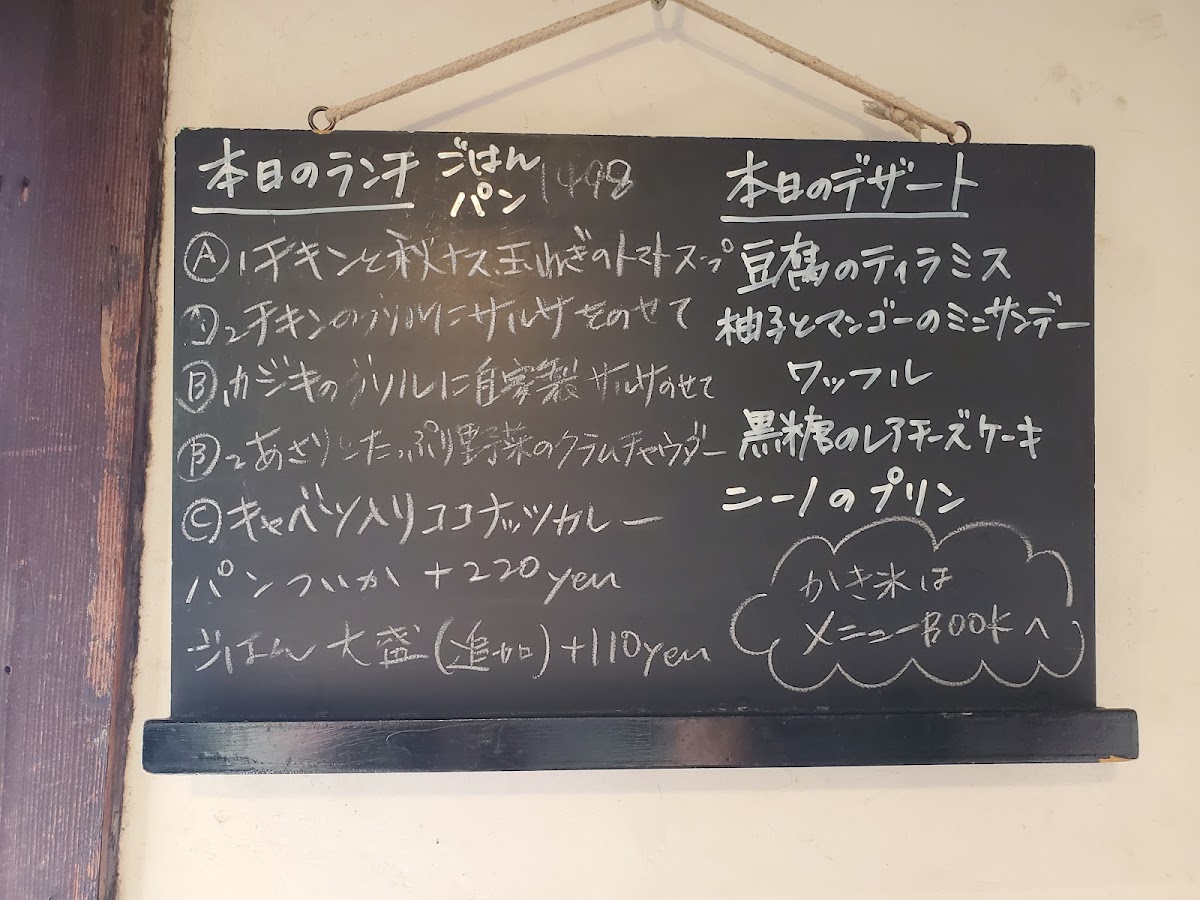 本日のランチ ごはん
パン 1498
Ⓐ1チキンと秋ナス、玉ねぎのトマトスープ
Ⓐ2チキンのグリルにサルサをのせて
Ⓑ1カジキのグリルに自家製サルサのせて
Ⓑ2あさりとたっぷり野菜のクラムチャウダー
Ⓒキャベツ入りココナッツカレー
パンついか +220yen
ごはん大盛(追加)+110yen
本日のデザート
豆腐のティラミス
柚子とマンゴーのミニサンデー
ワッフル
黒糖のレアチーズケーキ
ニーノのプリン
かき氷は
メニューBOOKへ